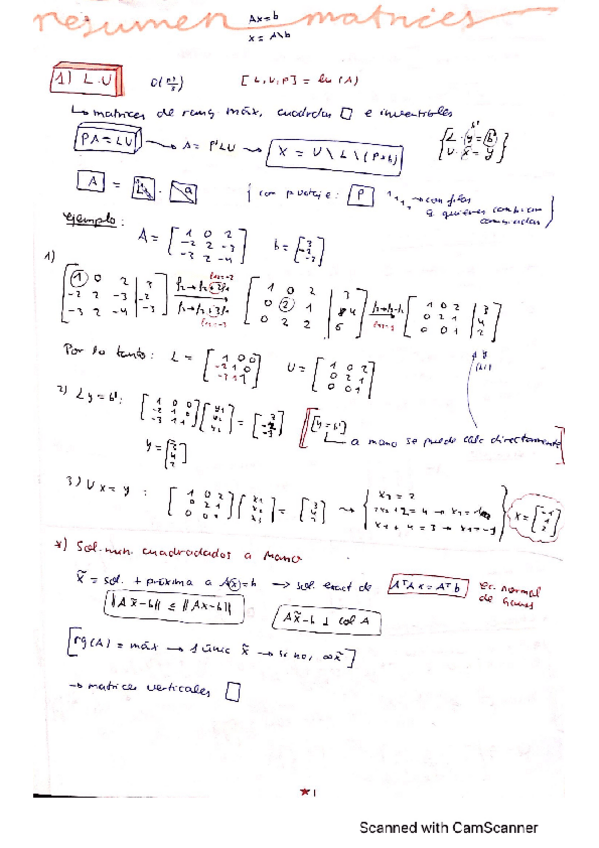 resumen matrices
Ax=b
x = A\b
1) L.U
O(n³/3)
[L,U,P] = lu(A)
↳ matrices de rang máx, cuadradas □ e invertibles
PA = LU → A = P'LU → X = U\L\(P*b)
{L·y = b'
U·x = y}
A =
con pivotaje: P
Ejemplo:
A = [1 0 2; -2 2 -3; -3 2 -4] b = [3; -2; -3]
1)
[1 0 2 | 3; -2 2 -3 | -2; -3 2 -4 | -3]
[1 0 2 | 3; 0 2 1 | 4; 0 2 2 | 6]
[1 0 2 | 3; 0 2 1 | 4; 0 0 1 | 2]
Por lo tanto: L = [1 0 0; -2 1 0; -3 1 1] U = [1 0 2; 0 2 1; 0 0 1]
2) Ly = b': [1 0 0; -2 1 0; -3 1 1] [y₁; y₂; y₃] = [3; -2; -3]
[y = b']
↳ a mano se puede calc directamente
y = [3; 4; 2]
3) Ux = y: [1 0 2; 0 2 1; 0 0 1] [x₁; x₂; x₃] = [3; 4; 2] →
x₃ = 2
2x₂+2 = 4 → x₂ = 1
x₁ + 4 = 3 → x₁ = -1
x = [-1; 1; 2]
*) Sol. mín. cuadrados a mano
x̃ = sol. + próxima a A(x)=b → sol. exact de AᵀAx = Aᵀb ec. normal de Gauss
||Ax̃-b|| ≤ ||Ax-b||
Ax̃-b ⊥ col A
[rg(A) = máx → 1 únic x̃ → si no, ∞ x̃]
→ matrices verticales
★ 1
Scanned with CamScanner